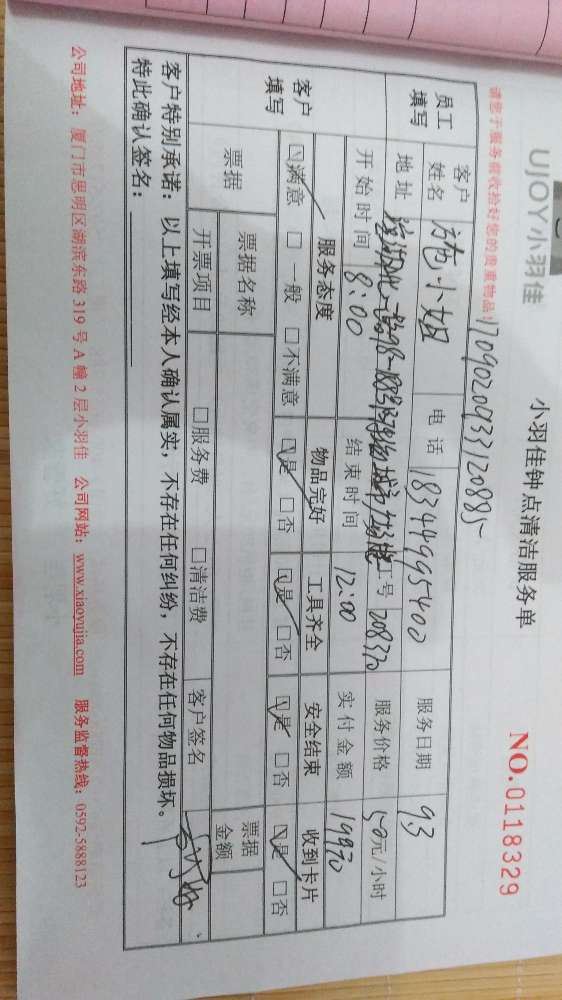 UJOY小羽佳
小羽佳钟点清洁服务单
NO.0118329
请您于服务前收拾好您的贵重物品!
1709020933120885
员工填写
客户姓名
小姐
电话
18344995400
服务日期
9.3
地址
工号
208370
服务价格
50元/小时
开始时间
8:00
结束时间
12:00
实付金额
199元
客户填写
服务态度
物品完好
工具齐全
安全结束
收到卡片
☑满意 □一般 □不满意
☑是 □否
☑是 □否
☑是 □否
☑是 □否
票据
票据名称
票据金额
开票项目
□服务费 □清洁费
客户签名
客户特别承诺:以上填写经本人确认属实,不存在任何纠纷,不存在任何物品损坏。
特此确认签名:
公司地址:厦门市思明区湖滨东路319号A幢2层小羽佳 公司网站:www.xiaoyujia.com 服务监督热线:0592-5888123